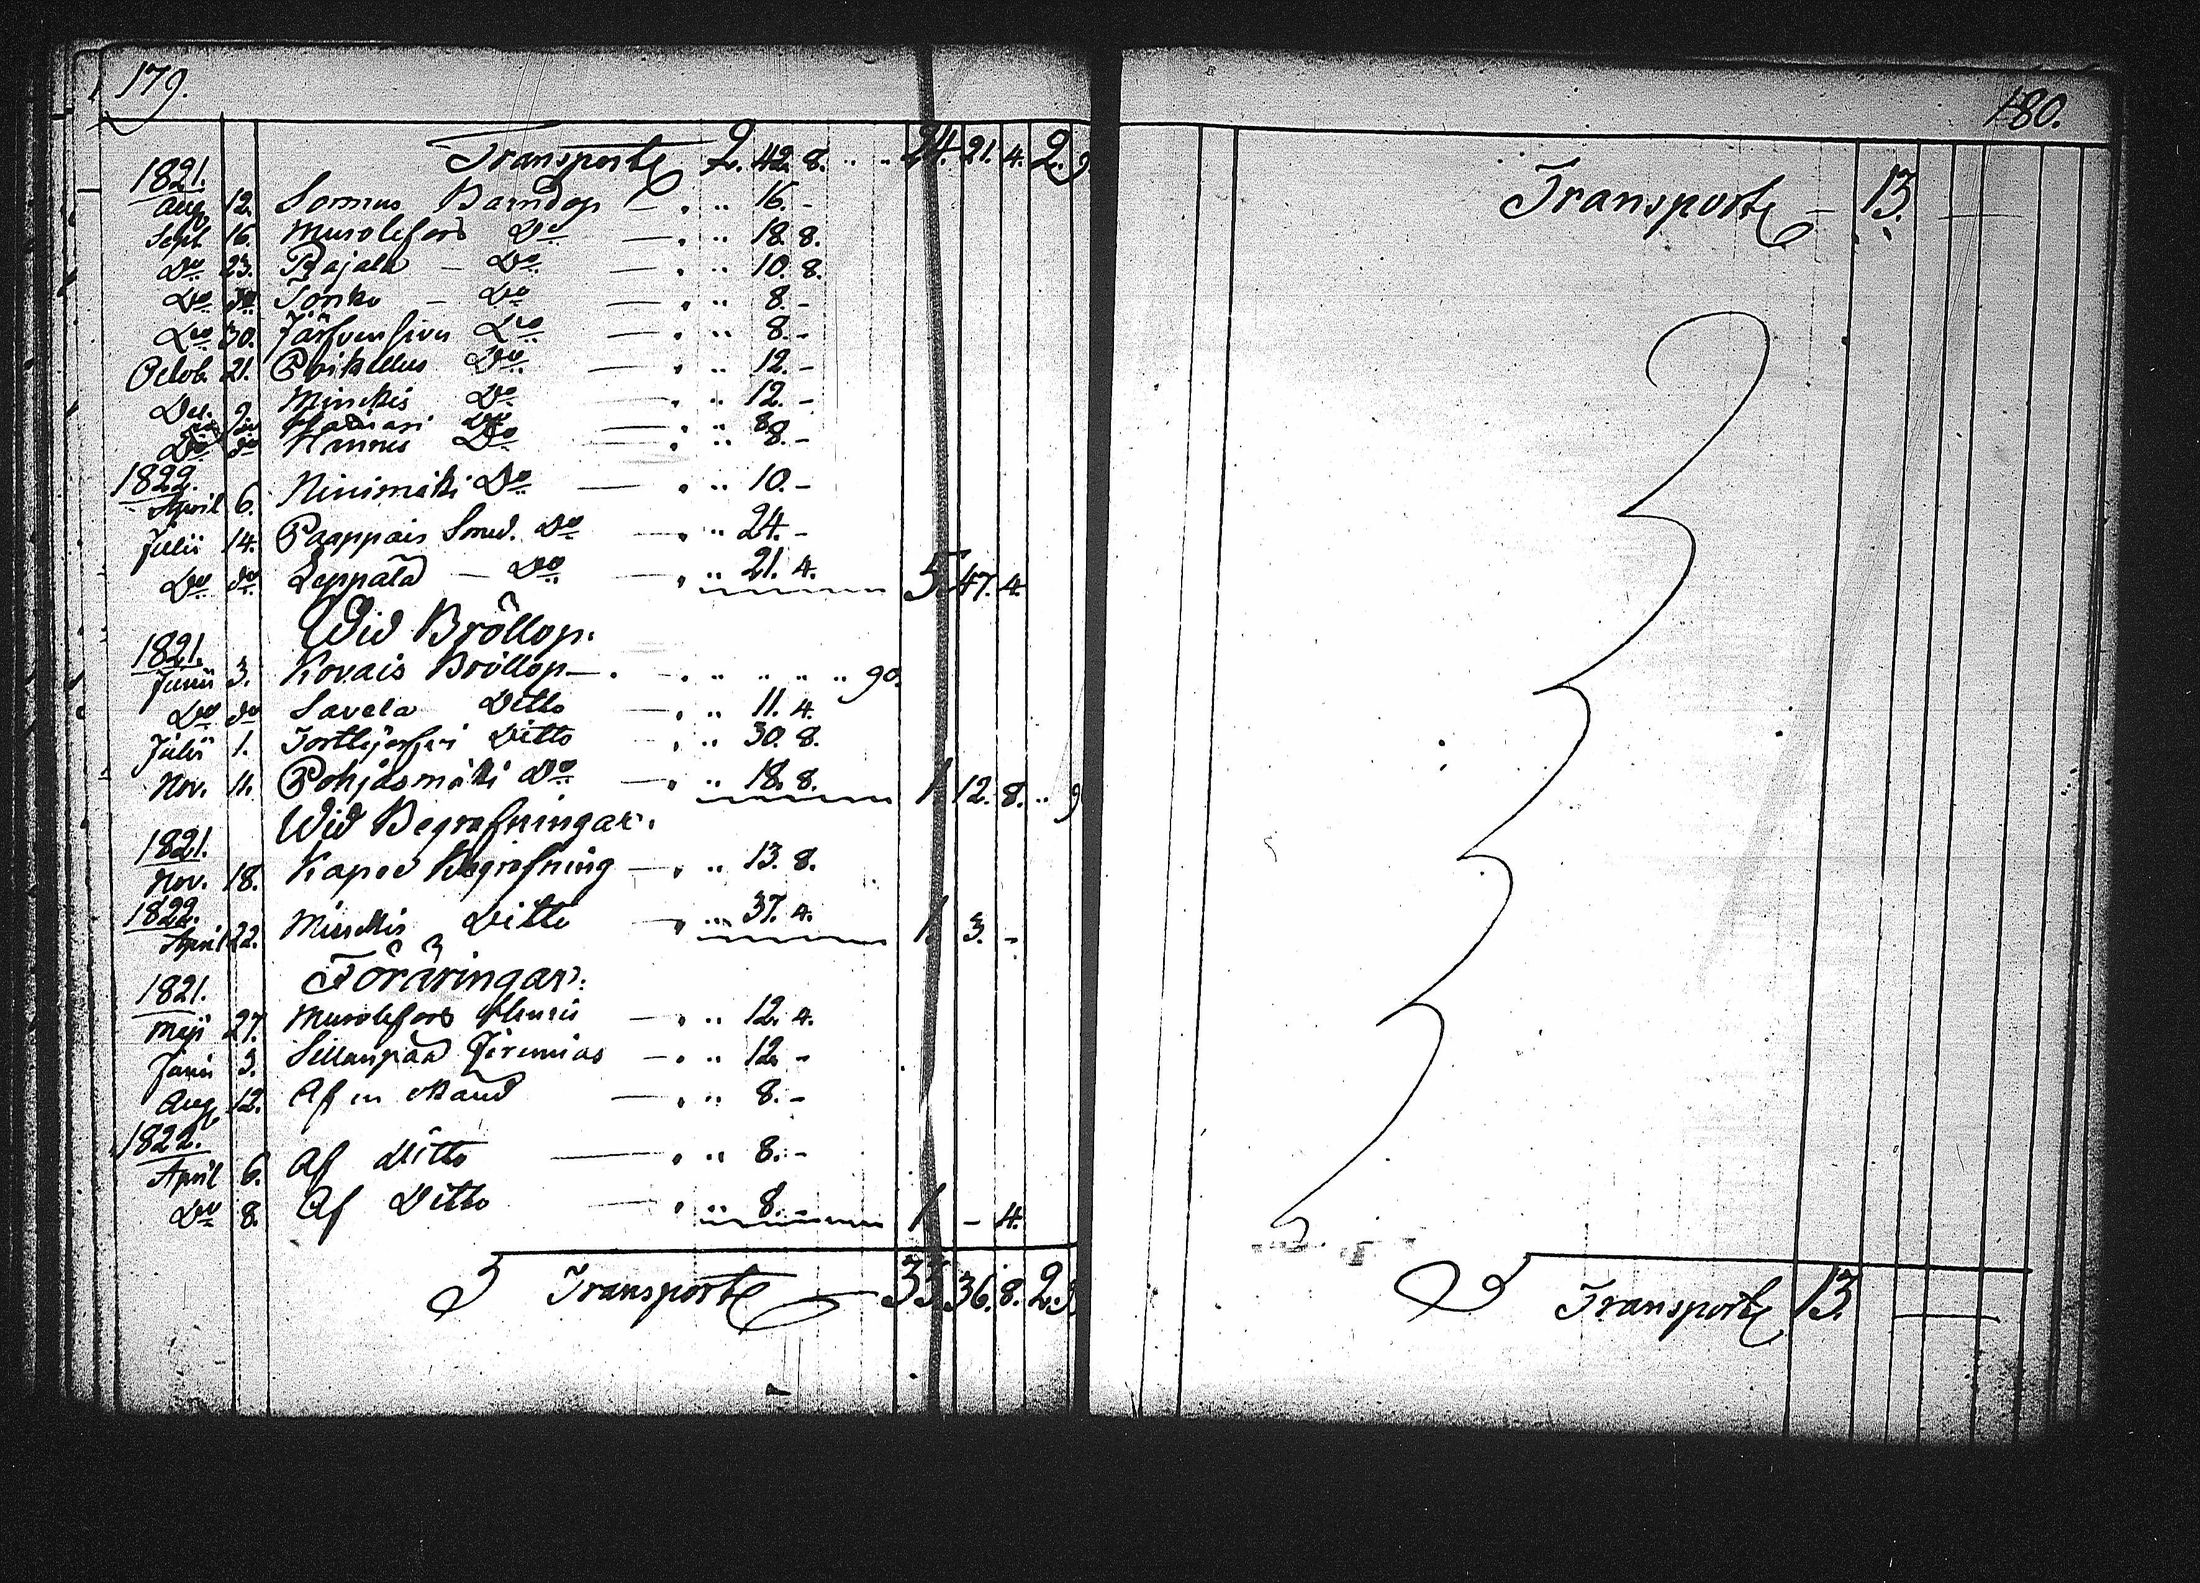 179.
Transport 2. 42. 8. 24. 21. 4. 2. 9
1821.
Aug. 12. Sormus Barndop — 16. -
Sept. 16. Murolefors Do — 18. 8.
Do 23. Pajala — Do — 10. 8.
Do do — Do — 8. -
Do 30. Do — 8. -
Octob. 21. Do — 12. -
Dec. 9. Do — 12. -
Do — 8.
Do do Hannus Do — 8. -
1822.
April 6. Ninimäki Do — 10. -
Julii 14. Paappais Smed. Do — 24. -
Do do Leppälä — Do — 21. 4. 5. 47. 4.
Wid Bröllop.
1821.
Junii 3. Kovais Bröllop — 90.
Do do Savela Ditto — 11. 4.
Julii 1. Ditto — 30. 8.
Nov. 11. Pohjasmäki Do — 18. 8. 1. 12. 8. 9
Wid Begrafningar.
1821.
Nov. 18. Begrafning — 13. 8.
1822.
April 22. Ditto — 37. 4. 1. 3. -
Föräringar:
1821.
Maji 27. Murolefors — 12. 4.
Junii 3. Sillanpää Jeremias — 12. -
Aug. 12. Af en Okänd — 8. -
1822.
April 6. Af Ditto — 8. -
Do 8. Af Ditto — 8. - 1. - 4.
Transport — 33. 36. 8. 2. 9.
180.
Transport — 13. —
Transport 13. —